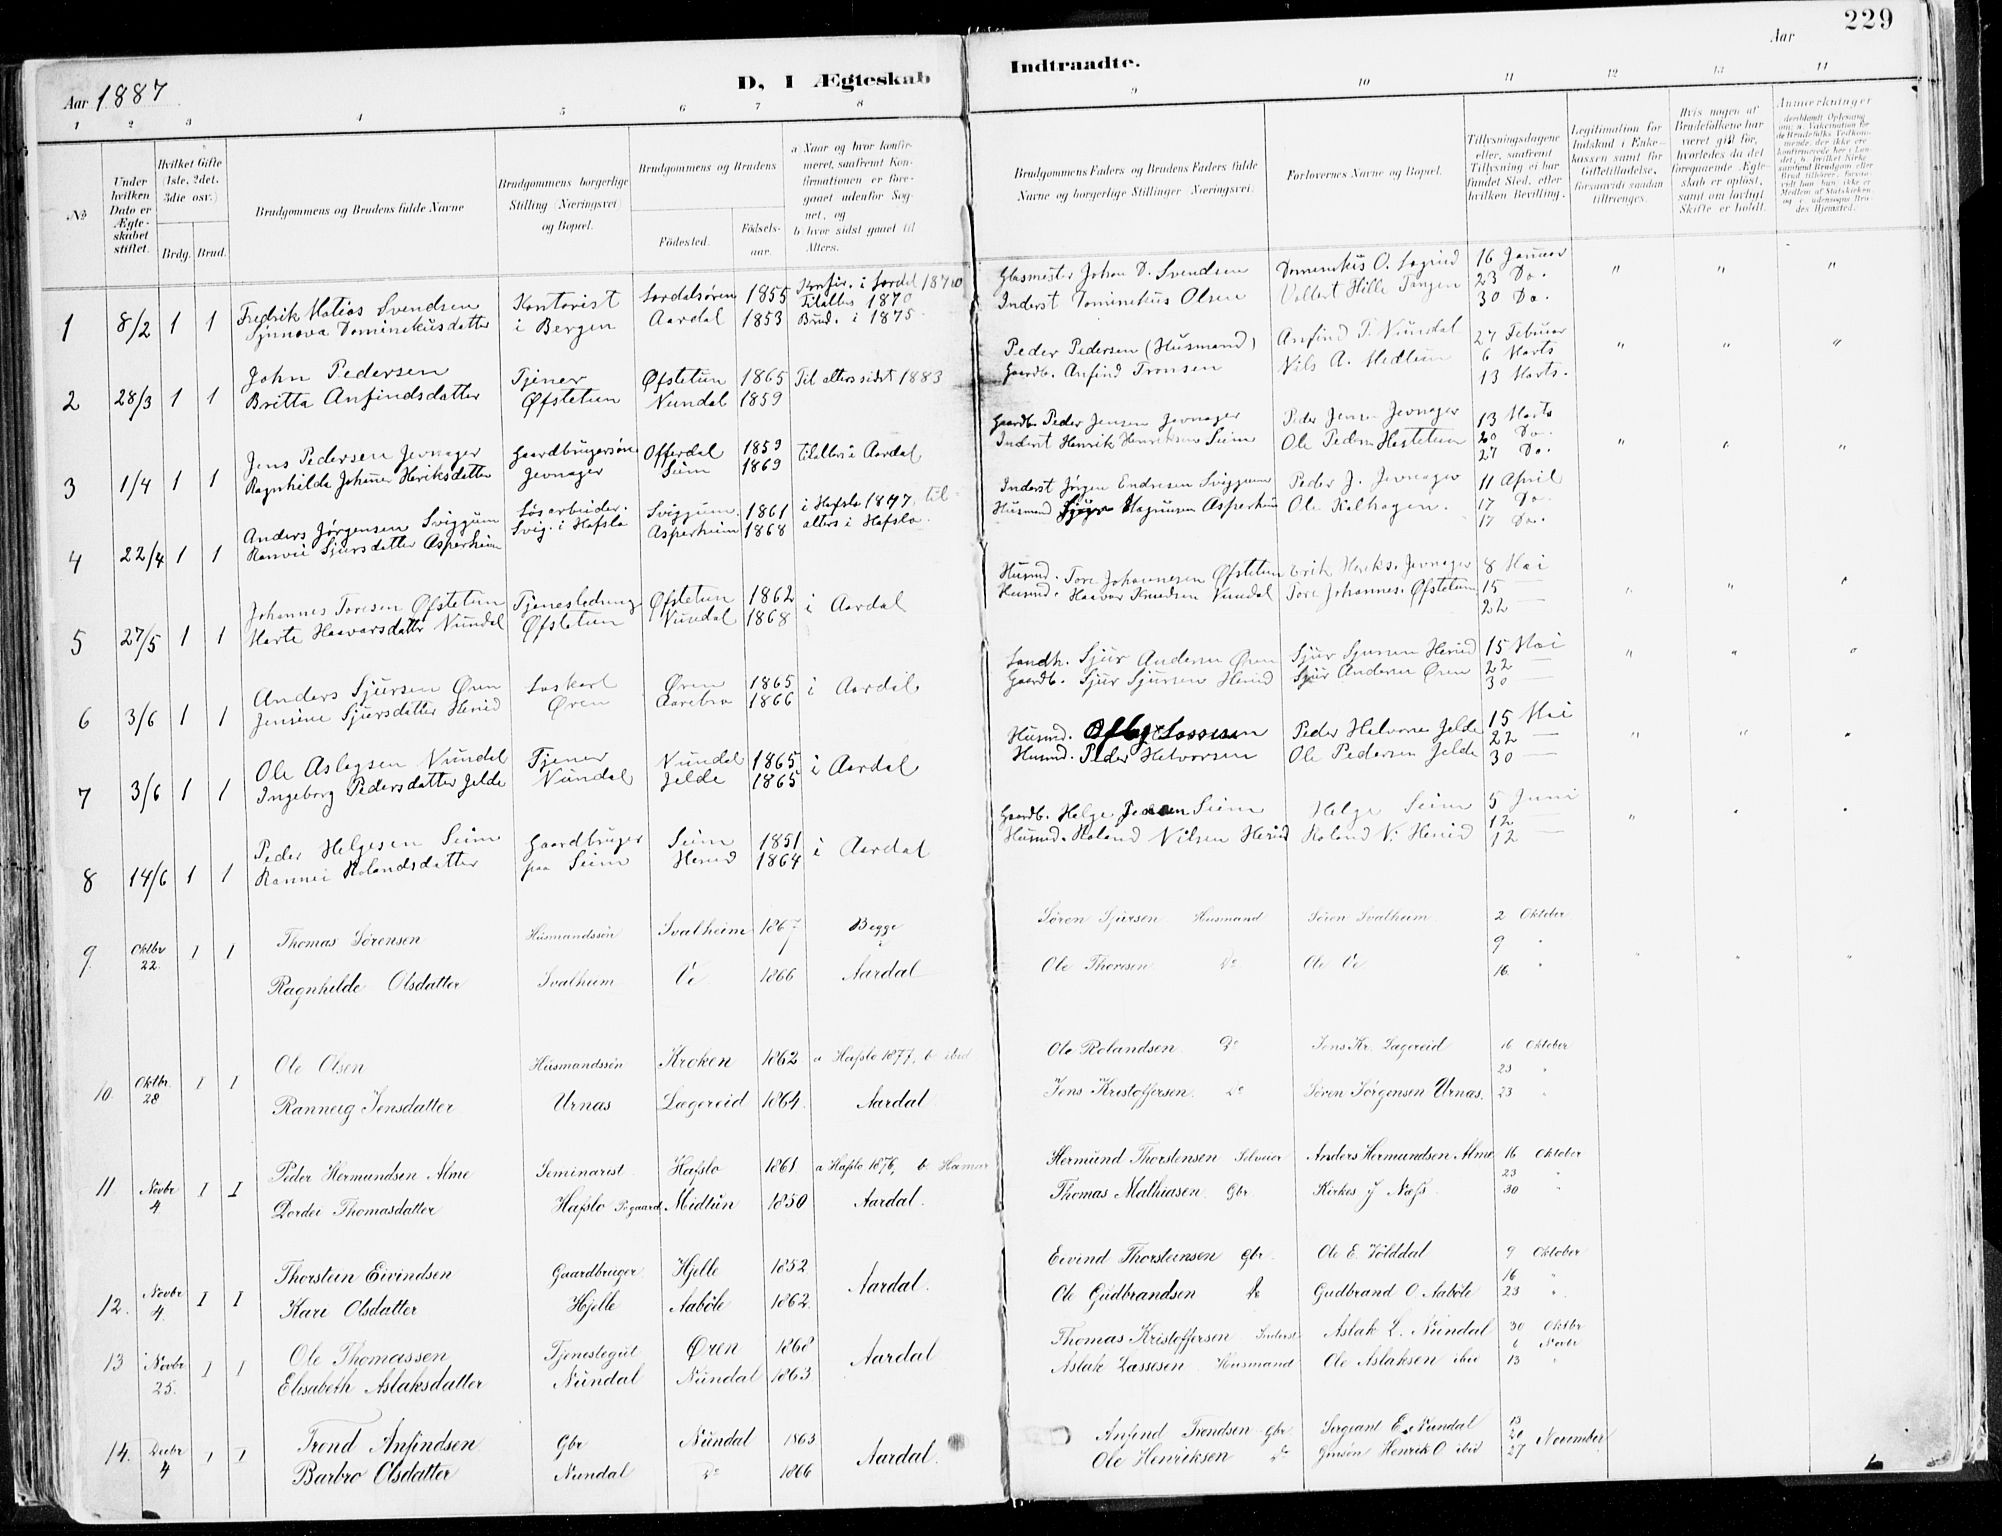 229
Aar 1887
D, I Ægteskab
Indtraadte.
Aar
1 2 3 4 5 6 7 8 9 10 11 12 13 14
No
Under hvilken Dato er Ægteskabet stiftet.
Hvilket Gifte (1ste, 2det, 3die osv.)
Brdg. Brud.
Brudgommens og Brudens fulde Navne
Brudgommens borgerlige Stilling (Næringsvei) og Bopæl.
Brudgommens og Brudens
Fødested.
Fødselsaar.
a Naar og hvor konfirmeret, saafremt Konfirmationen er foregaaet udenfor Sognet, og
b hvor sidst gaaet til Alters.
Brudgommens Faders og Brudens Faders fulde Navne og borgerlige Stillinger (Næringsvei.
Forlovernes Navne og Bopæl.
Tillysningsdagene eller, saafremt Tillysning ei har fundet Sted, efter hvilken Bevilling.
Legitimation for Indskud i Enkekassen samt for Giftetilladelse, forsaavidt saadan tiltrænges.
Hvis nogen af Brudefolkene har været gift før, hvorledes da det foregaaende Ægteskab er opløst, samt om lovligt Skifte er holdt.
Anmærkninger
1 8/2 1 1 Fredrik Matias Svendsen Kontorist Aardalsøren 1855 Konfir. i Aardal 1870 Glasmester Johan D. Svendsen 16 Januar
Synnova Dominikusdatter i Bergen Aardal 1853 Brud. i 1875. Inderst Dominikus Olsen 23 Do. 30 Do.
2 28/3 1 1 John Pedersen Tjener Øfstetun 1865 Til alters sidst 1883 Peder Pedersen (Husmand) Anfind T. Nundal 27 Februar
Britta Anfindsdatter Øfstetun Nundal 1859 Gaardb. Anfind Tronsen Nils A. Medtun 6 Marts 13 Marts.
3 1/4 1 1 Jens Pedersen Jevnager Gaardbrugersøn Offerdal 1859 til alters i Aardal Gaardb. Peder Jensen Jevnager Peder Jensen Jevnager 13 Marts
Ragnhilda Johanne Heriksdatter Jevnager Seim 1869 Inderst Henrik Henriksen Seim Ole Pedersen Hestetun 20 Do. 27 Do.
4 22/4 1 1 Anders Jørgensen Sviggum Løsarbeider. Sviggum. 1861 i Hafslo 1877, til Inderst Jørgen Endresen Sviggum Peder J. Jevnager 11 April
Ranvei Sjursdatter Asperheim Svig. i Hafslo Asperheim 1868 alters i Hafslo. Husmand Sjur Magnusen Asperheim Ole Kalhagen. 17 Do. 17 Do.
5 27/5 1 1 Johannes Toresen Øfstetun Tjenestedreng Øfstetun 1862 i Aardal Husmd. Tore Johannesen Øfstetun Erik Heriks. Jevnager 8 Mai
Marte Haavarsdatter Nundal Øfstetun Nundal 1868 Husmd. Haavar Knudsen Nundal Tore Johannes. Øfstetun 15 — 22 —
6 3/6 1 1 Anders Sjursen Øren Løskarl Øren 1865 i Aardal Landh. Sjur Andersen Øren Sjur Sjursen Herid 15 Mai
Jensine Sjursdatter Herid Øren Aarebro 1866 Gaardb. Sjur Sjursen Herid Sjur Andersen Øren 22 — 30 —
7 3/6 1 1 Ole Aslagsen Nundal Tjener Nundal 1865 i Aardal Husmd. Lassesen Peder Halvorsen Jelde 15 Mai
Ingeborg Pedersdatter Jelde Nundal Jelde 1865 Husmd. Peder Halvorsen Ole Pedersen Jelde 22 — 30 —
8 14/6 1 1 Peder Helgesen Seim Gaardbruger Seim 1851 i Aardal Gaardb. Helge Seim Helge Seim 5 Juni
Rannei Rolandsdatter paa Seim Herid 1864 Husmd. Roland Nilsen Herid Roland N. Herid 12 — 12
9. Oktbr 22. I I Thomas Sørensen Husmandssøn Svalheim 1867 Begge i Søren Sjursen Husmand Søren Svalheim 2 Oktober
Ragnhilde Olsdatter Svalheim Ve 1866 Aardal Ole Thoresen Do Ole Ve 9 " 16. "
10. Oktbr. 28 I I Ole Olsen Husmandssøn Kroken 1862 a Hafslo 1877, b ibid Ole Rolandsen Do Jens Kr. Lægereid 16 Oktober
Ranneig Jensdatter Urnas Lægereid 1864. Aardal. Jens Kristoffersen. Do Søren Jørgensen Urnas. 23 " 23 "
11. Novbr 4 I I Peder Hermundsen Alme Seminarist Hafslo 1861 a Hafslo 1876, b Hamar Hermund Thorstensen Selveier Anders Hermundsen Alme 16 Oktober
Dordei Thomasdatter Hafslo Midtun 1850 Aardal. Thomas Mathiasen. Gbr. Kirkes. J Næss. 23 " 30 "
12. Novbr 4. I I Thorstein Eivindsen Gaardbruger Hjelle 1852 Aardal. Eivind Thorsteinsen Gbr. Ole E. Volddal 9 Oktober
Kari Olsdatter Hjelle Aabøle 1862. Ole Gudbrandsen Do Gudbrand O. Aabøle 16 " 23 "
13 Novbr 25. I I Ole Thomassen Tjenestegut Øren 1868 Aardal Thomas Kristoffersen Inderst Aslak L. Nundal 30 Oktbr
Elisabeth Aslaksdatter Nundal Nundal 1863 Aslak Lassesen Husmand Ole Aslaksen ibid 6 Novbr 13 "
14. Decbr 4 I I Trond Anfindsen Gbr Nundal 1863 Aardal. Anfind Trondsen Gbr. Sergeant E. Nundal 13 20 27 November
Barbro Olsdatter Nundal Do 1866 Ole Henriksen Do Henrik O. ibid